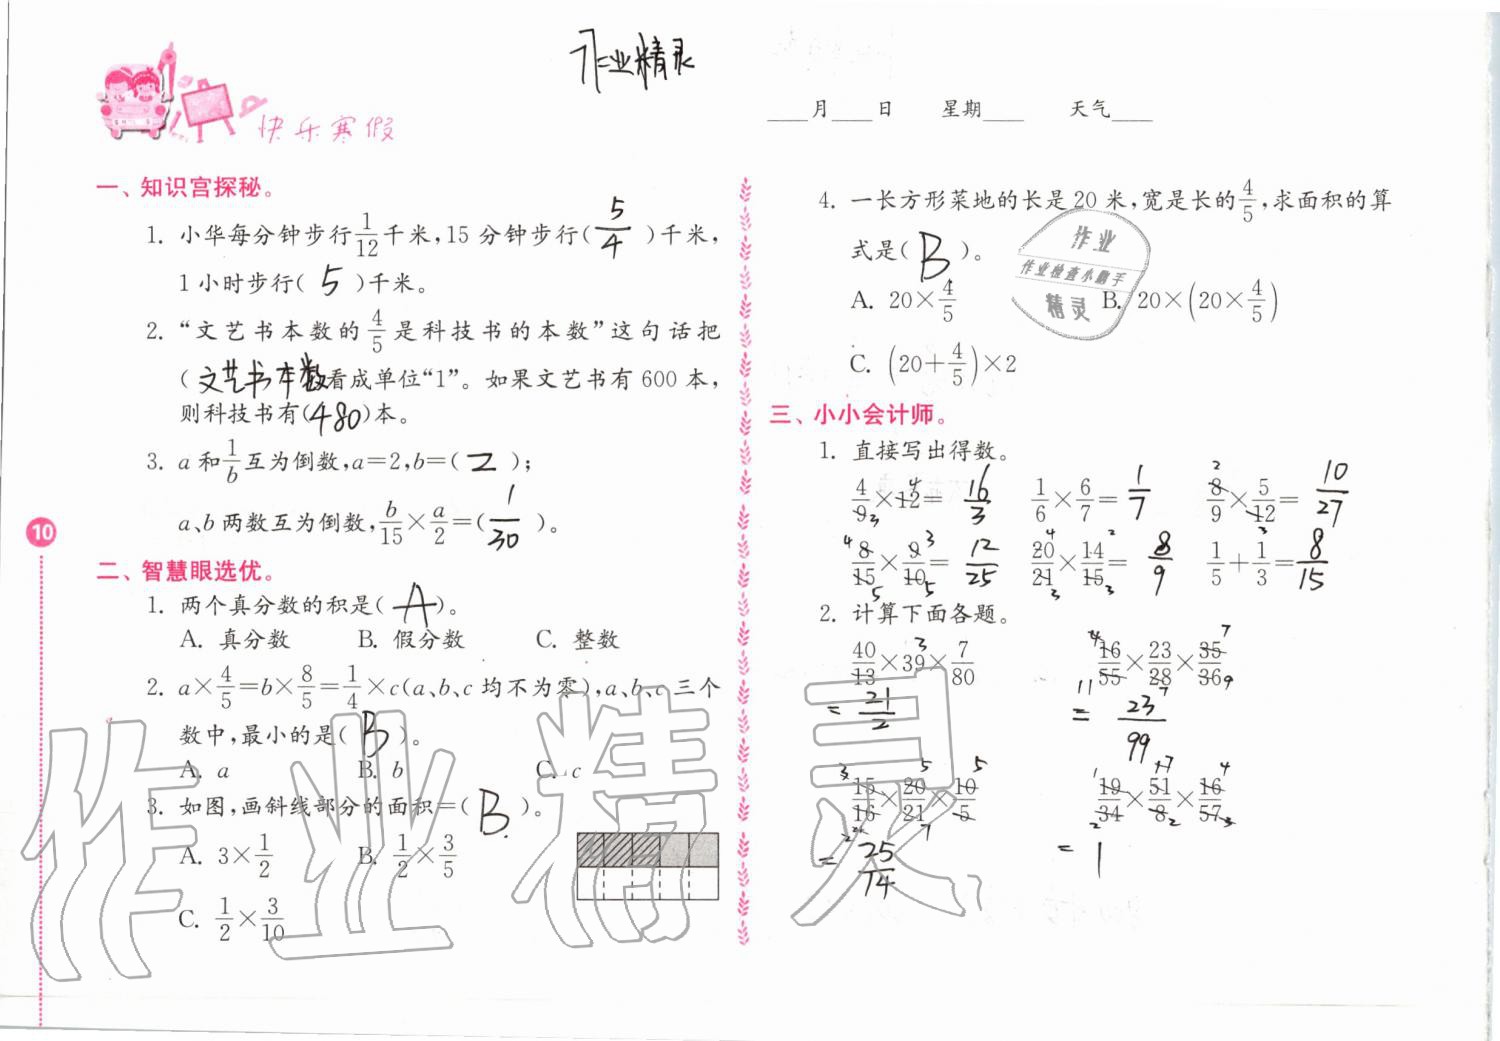 作业精灵
快乐寒假
____月____日 星期____ 天气____
一、知识宫探秘。
1. 小华每分钟步行1/12千米,15分钟步行( 5/4 )千米,
1小时步行( 5 )千米。
2. “文艺书本数的4/5是科技书的本数”这句话把
(文艺书本数看成单位“1”。如果文艺书有600本,
则科技书有(480)本。
3. a和1/b互为倒数,a=2,b=( 2 );
a、b两数互为倒数,b/15×a/2=( 1/30 )。
10
二、智慧眼选优。
1. 两个真分数的积是( A )。
A. 真分数 B. 假分数 C. 整数
2. a×4/5=b×8/5=1/4×c(a、b、c均不为零),a、b、c三个
数中,最小的是( B )。
A. a B. b C. c
3. 如图,画斜线部分的面积=( B )。
A. 3×1/2 B. 1/2×3/5
C. 1/2×3/10
4. 一长方形菜地的长是20米,宽是长的4/5,求面积的算
式是( B )。
A. 20×4/5 B. 20×(20×4/5)
C. (20+4/5)×2
作业
作业检查小助手
精灵
三、小小会计师。
1. 直接写出得数。
4/9×12= 16/3 1/6×6/7= 1/7 8/9×5/12= 10/27
8/15×9/10= 12/25 20/21×14/15= 8/9 1/5+1/3= 8/15
2. 计算下面各题。
40/13×39×7/80 16/55×23/28×35/36
= 21/2 = 23/99
15/16×20/21×10/5 19/34×51/8×16/57
= 25/14 = 1
作业精灵